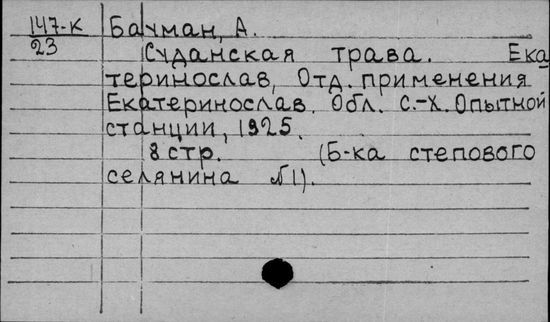 147-К Бахман, А.
23
Суданская трава. Ека
теринослав, Отд. применения
Екатеринослав. Обл. С.-Х. Опытной
станции, 1925.
8 стр. (Б-ка степового
селянина №1).